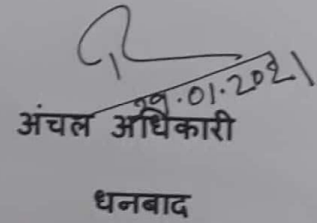 29.01.2021
अंचल अधिकारी
धनबाद